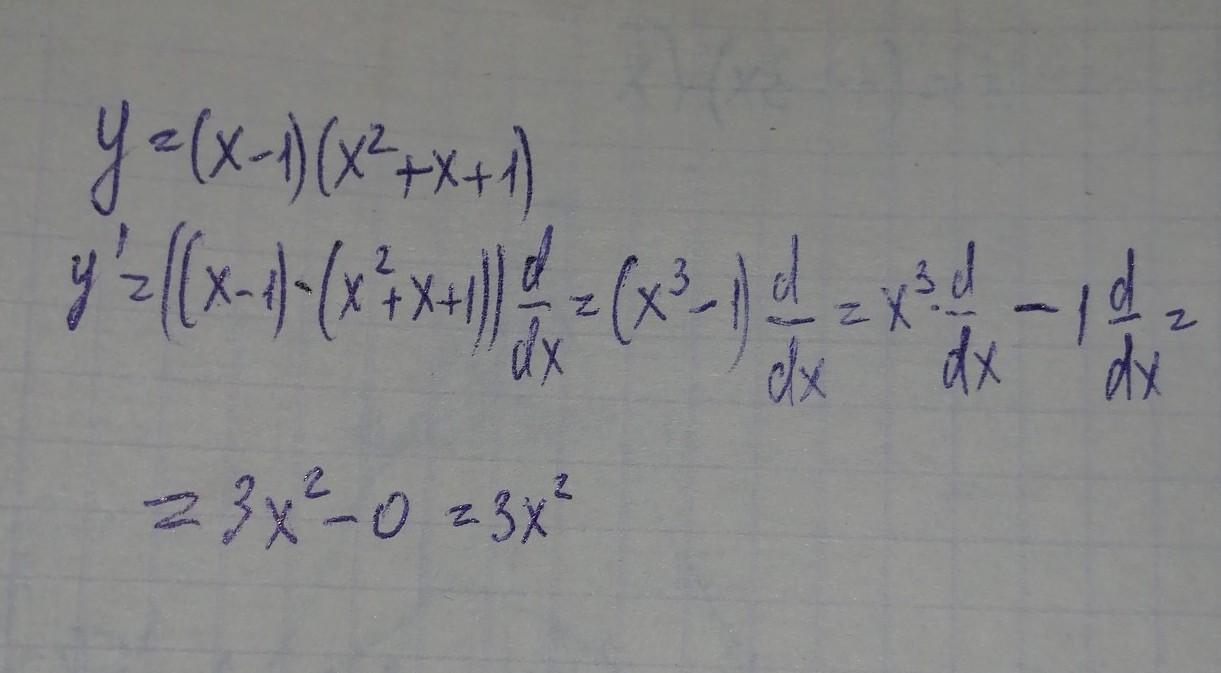 y = (x-1)(x²+x+1)
y' = ((x-1)·(x²+x+1)) d/dx = (x³-1) d/dx = x³· d/dx - 1 d/dx =
= 3x² - 0 = 3x²